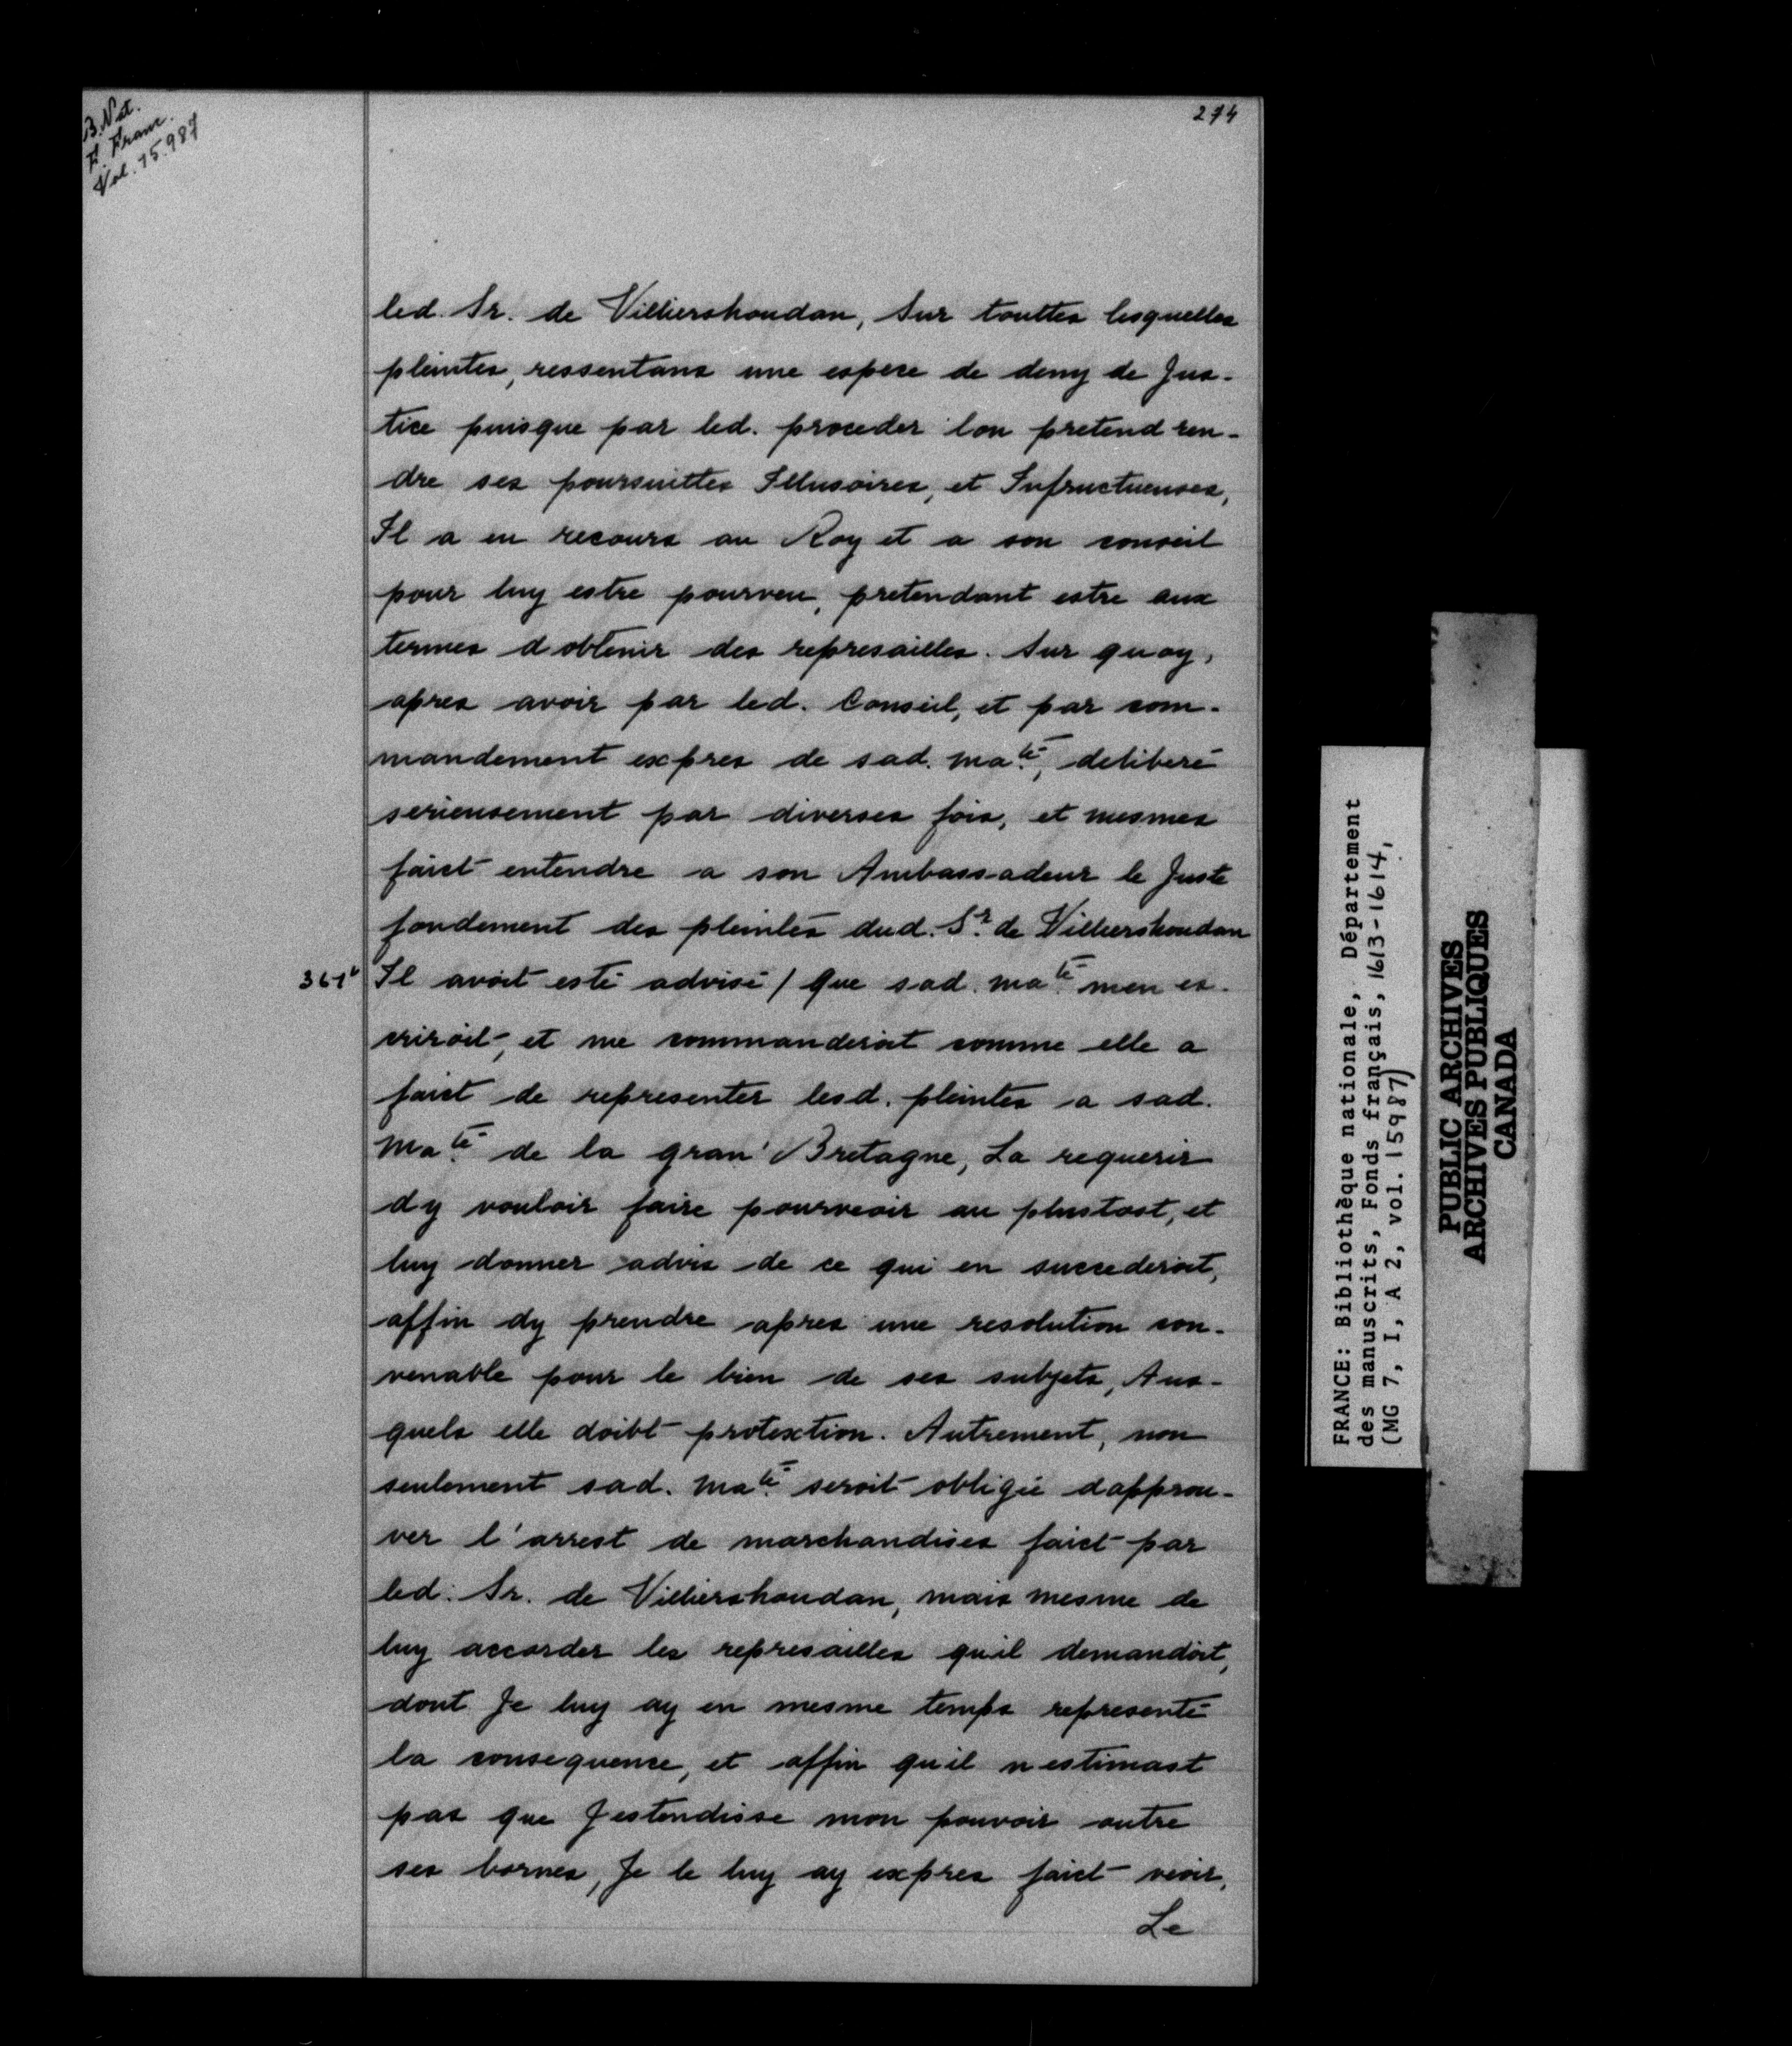 B. Nat.
F. Franc.
Vol. 15.987
274
led. Sr. de Villiershoudan, Sur touttes lesquelles
pleintes, ressentans une espece de deny de Jus-
tice puisque par led. proceder lon pretend ren-
dre ses poursuittes Illusoires, et Infructueuses,
Il a eu recours au Roy et a son conseil
pour luy estre pourveu, pretendant estre aux
termes d obtenir des represailles. Sur quoy,
apres avoir par led. Conseil, et par com-
mandement expres de sad. ma.té, deliberé
serieusement par diverses fois, et mesmes
faict entendre a son Ambassadeur le Juste
fondement des pleintes dud. Sr. de Villiershoudan
367v Il avoit esté advisé / que sad. ma.té men es-
criroit, et me commanderoit comme elle a
faict de representer lesd. pleintes a sad.
Ma.té de la gran' Bretagne, La requerir
dy vouloir faire pourveoir au plustost, et
luy donner advis de ce qui en succederoit,
affin dy prendre apres une resolution con-
venable pour le bien de ses subjets, Aus-
quels elle doibt protection. Autrement, non
seulement sad. Ma.té seroit obligée dapprou-
ver l'arrest de marchandises faict par
led. Sr. de Villiershoudan, mais mesme de
luy accorder les represailles quil demandoit,
dont Je luy ay en mesme temps representé
la consequence, et affin quil n estimast
pas que Jestendisse mon pouvoir outre
ses bornes, Je le luy ay expres faict veoir,
Le
FRANCE: Bibliothèque nationale, Département
des manuscrits, Fonds français, 1613-1614,
(MG 7, I, A 2, vol. 15987)
PUBLIC ARCHIVES
ARCHIVES PUBLIQUES
CANADA